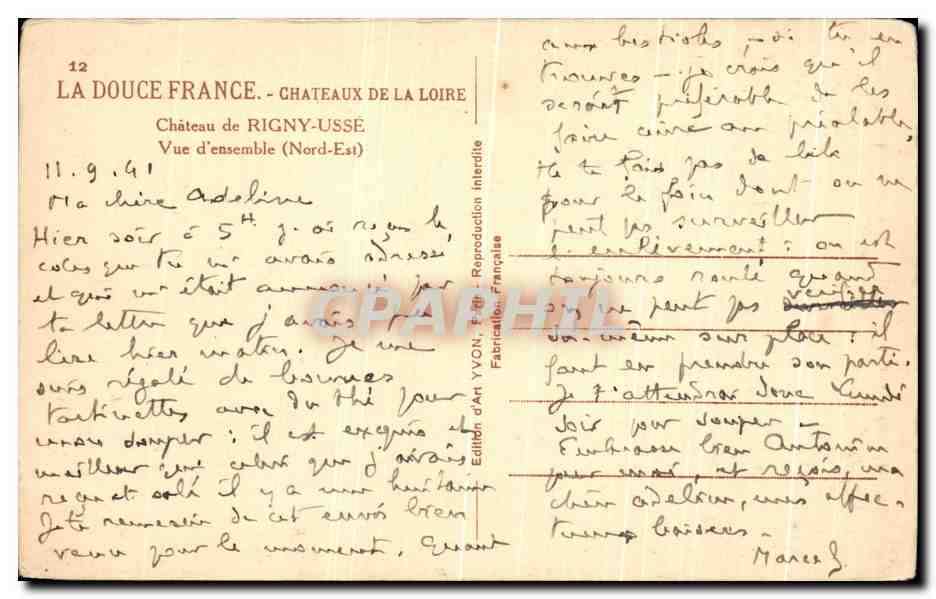 12
LA DOUCE FRANCE. - CHATEAUX DE LA LOIRE
Château de RIGNY-USSÉ
Vue d'ensemble (Nord-Est)
11.9.41
Ma chère Adeline
Hier soir à 5H j'ai reçu le
colis que tu m'avais adressé
et qui m'était annoncé par
ta lettre que j'avais pu
lire hier matin. Je me
suis régalé de bonnes
tartinettes avec du thé pour
mon souper : il est exquis et
meilleur que celui que j'avais
reçu et salé il y a une huitaine
Je te remercie de cet envoi bien
venu pour le moment. Quant
Edition d'Art YVON, Paris Reproduction interdite
Fabrication Française
CPAPHIL
aux bestioles, - si tu en
trouves - je crois qu'il
serait préférable de les
faire cuire au préalable,
Ne te fais pas de bile
pour le foin dont on ne
peut pas surveiller
l'enlèvement : on est
toujours roulé quand
on ne peut pas vérifier
soi-même sur place : il
faut en prendre son parti.
Je t'attendrai donc Lundi
soir pour souper -
Embrasse bien Antonin
pour moi, et reçois, ma
chère Adeline, mes affec-
tueux baisers -
Marcel